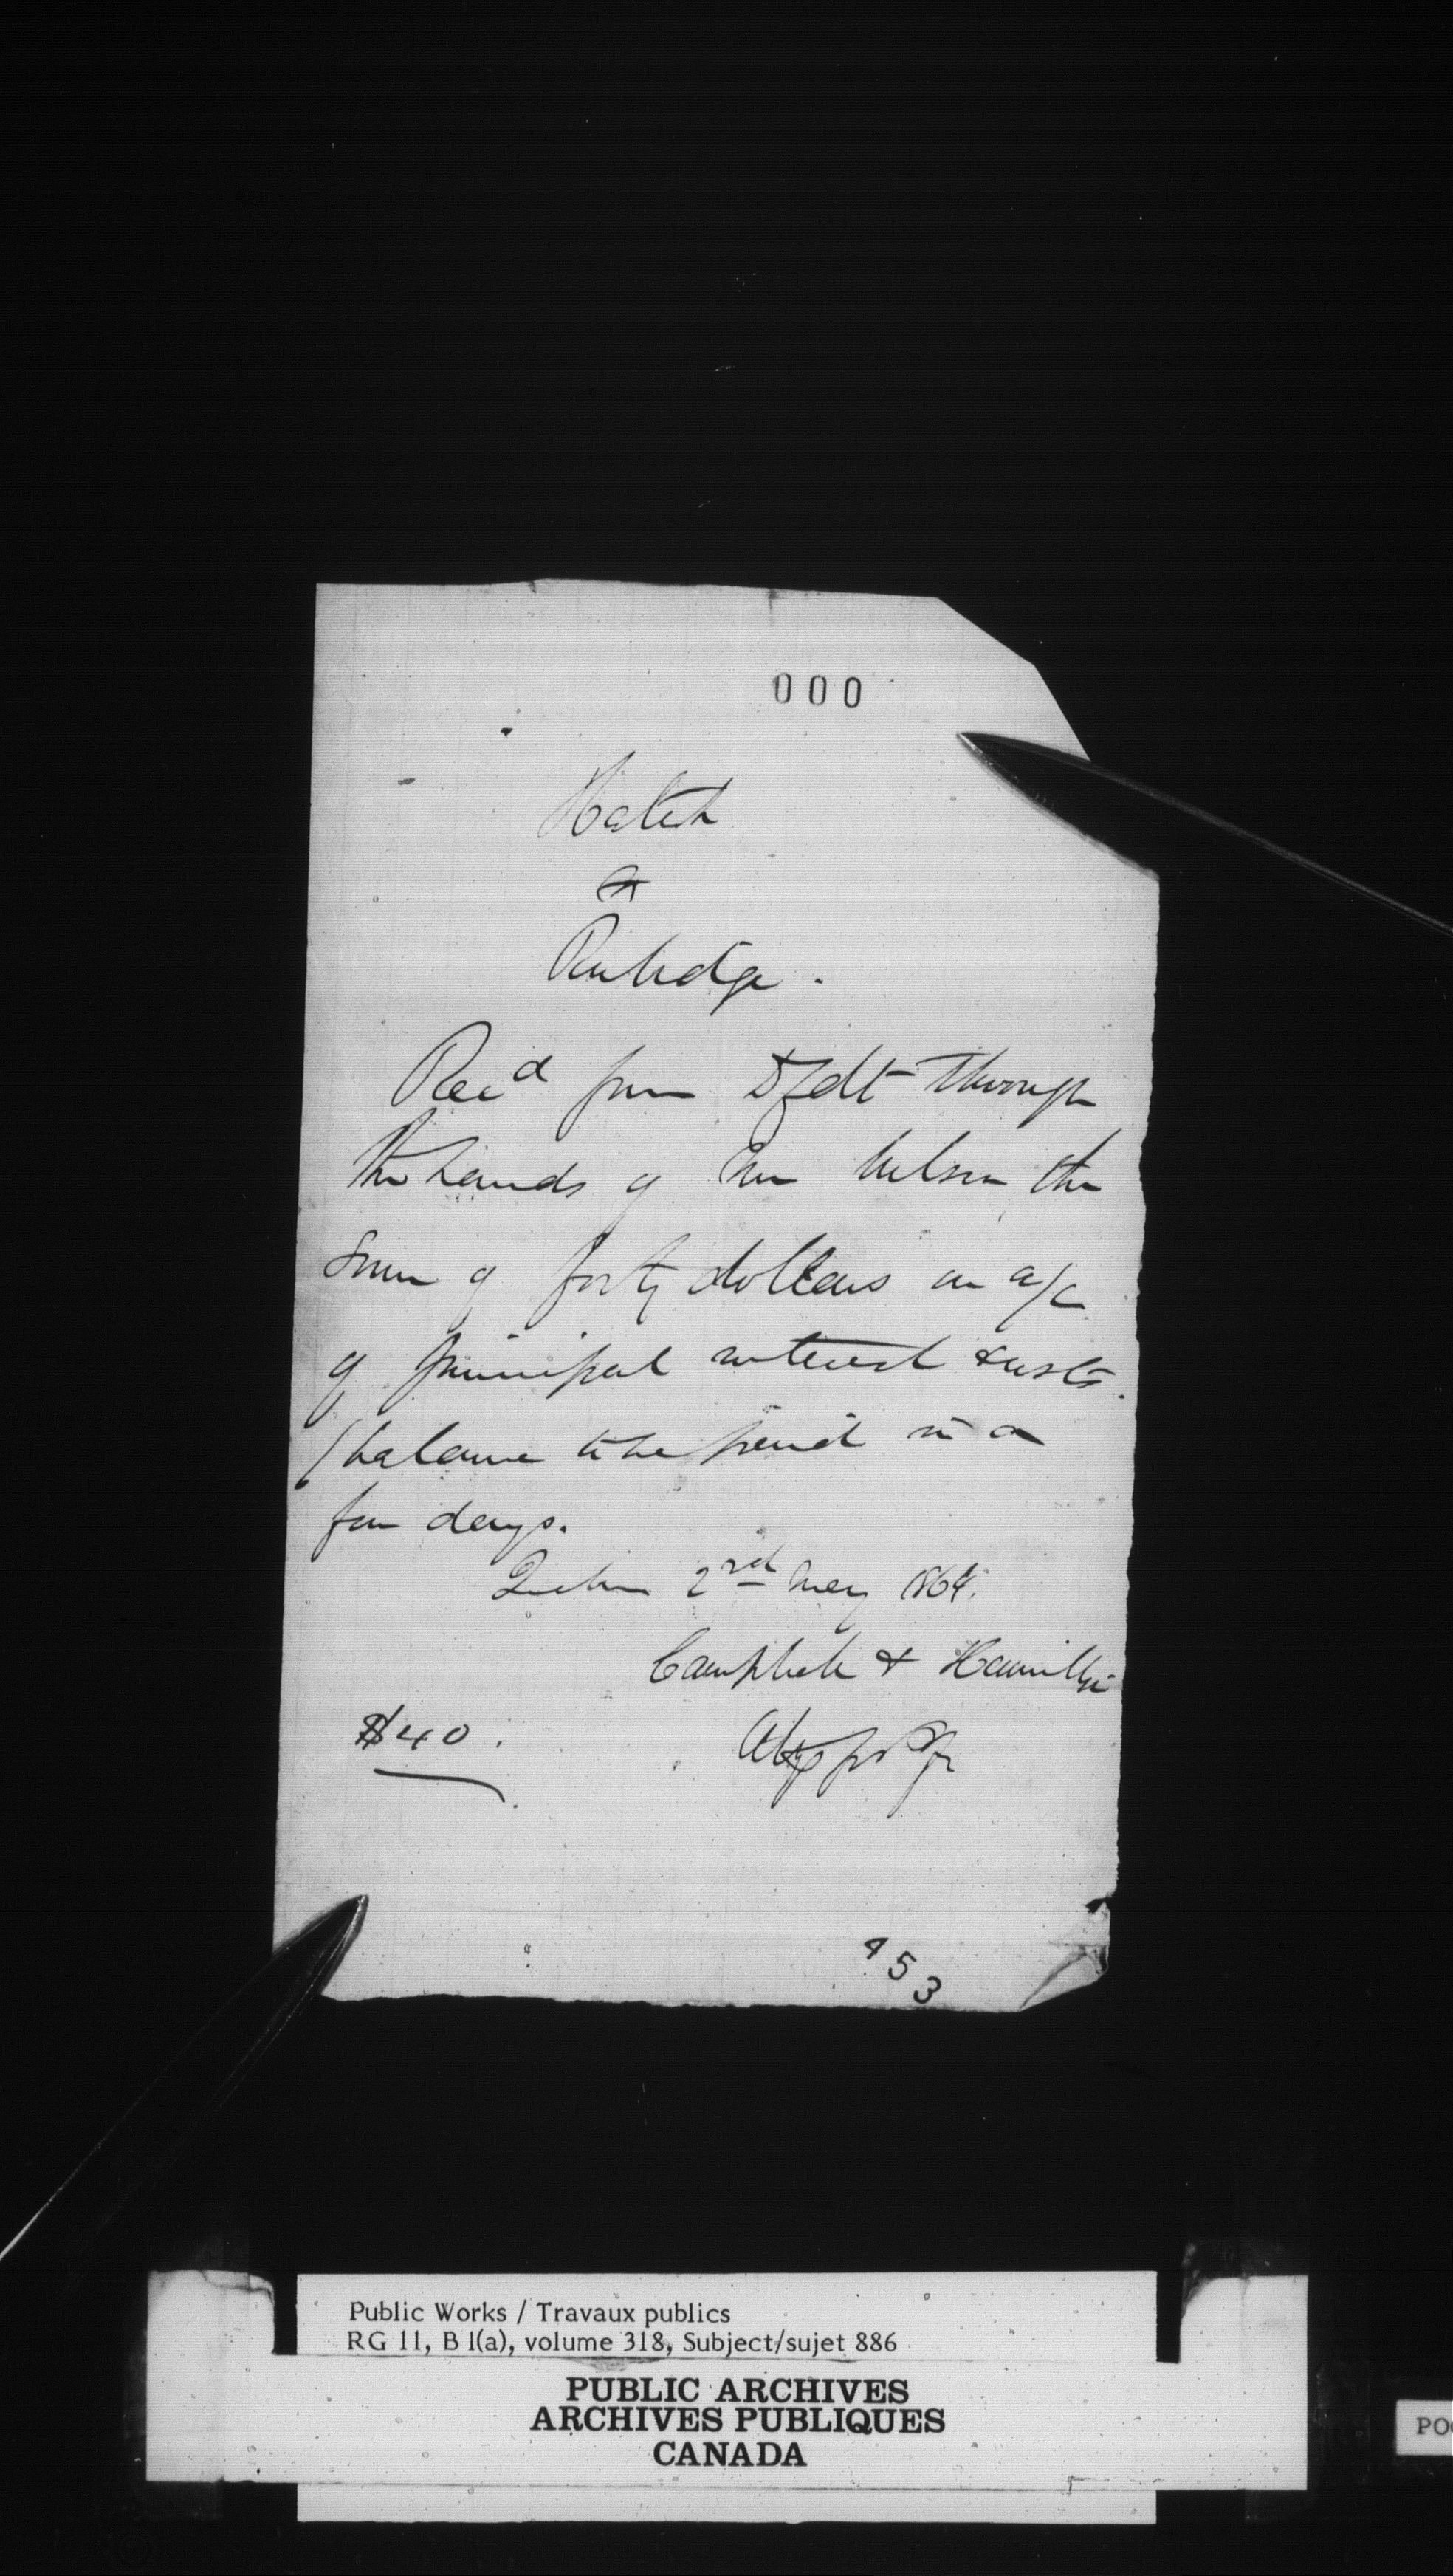 000
Hatch
&
Rutledge.
Recd from Dfdt through
the hands of Mr Nelson the
Sum of forty dollars on a/c
of principal interest & costs.
(balance to be paid in a
few days.
Quebec 2nd May 1864.
Campbell & Hamilton
$40.
Attys for Plff
453
Public Works / Travaux publics
RG 11, B 1(a), volume 318, Subject/sujet 886
PUBLIC ARCHIVES
ARCHIVES PUBLIQUES
CANADA